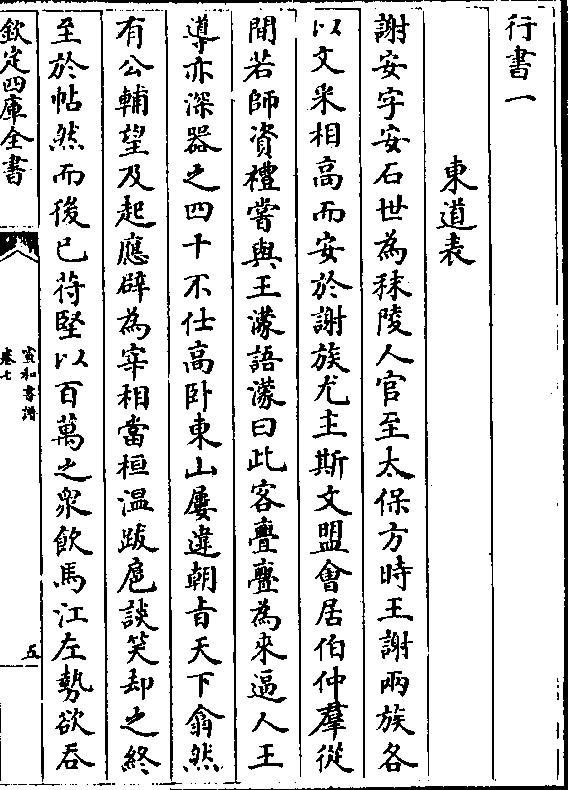 行書一
東道表
謝安字安石世為秣陵人官至太保方時王謝兩族各
以文采相高而安於謝族尤主斯文盟會居伯仲羣從
間若師資禮嘗與王濛語濛曰此客亹亹為來逼人王
導亦深器之四十不仕高卧東山屢違朝旨天下翕然
有公輔望及起應辟為宰相當桓温跋扈談笑却之終
至於帖然而後已苻堅以百萬之衆飲馬江左勢欲吞
欽定四庫全書
宣和書譜
卷七
五